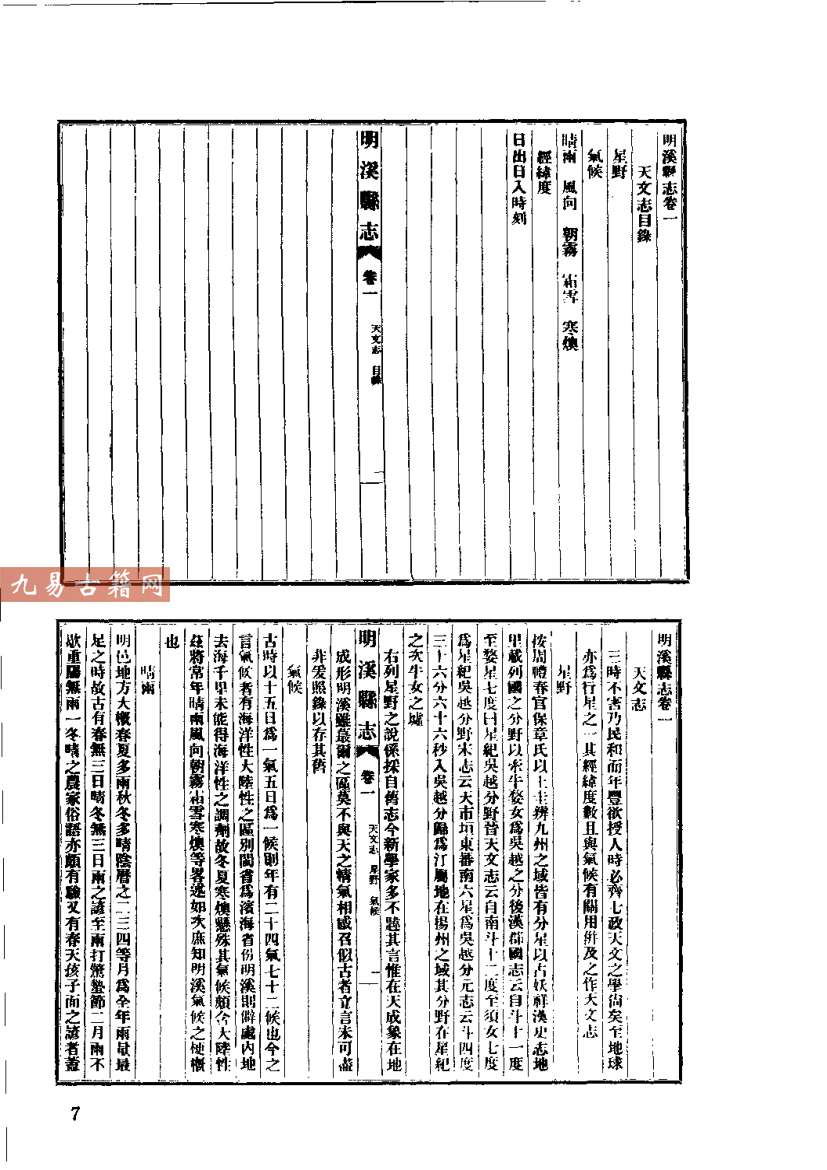 明溪縣志卷一
天文志目錄
星野
氣候
晴雨 風向 朝霧 霜雪 寒燠
經緯度
日出日入時刻
明溪縣志 卷一 天文志 目錄 一
九易古籍网
明溪縣志卷一
天文志
三時不害乃民和而年豐欲授人時必齊七政天文之學尚矣至地球
亦爲行星之一其經緯度數且與氣候有關用併及之作天文志
星野
按周禮春官保章氏以土辨九州之域皆有分星以占妖祥漢史志地
里載列國之分野以牽牛婺女爲吳越之分後漢郡國志云自斗十一度
至婺星七度曰星紀吳越分野晉天文志云自南斗十二度至須女七度
爲星紀吳越分野宋志云天市垣東蕃南六星爲吳越分元志云斗四度
三十六分六十六秒入吳越分歸爲汀屬地在揚州之域其分野在星紀
之次牛女之墟
右列星野之說係採自舊志今新學家多不韙其言惟在天成象在地
明溪縣志 卷一 天文志 星野 氣候 一
成形明溪雖蕞爾之區莫不與天之精氣相感召似古者立言未可盡
非爰照錄以存其舊
氣候
古時以十五日爲一氣五日爲一候則年有二十四氣七十二候也今之
言氣候者有海洋性大陸性之區別閩省爲濱海省份明溪則僻處內地
去海千里未能得海洋性之調劑故冬夏寒燠懸殊其氣候頗含大陸性
茲將常年晴雨風向朝霧霜雪寒燠等畧述如次庶知明溪氣候之梗概
也
晴雨
明邑地方大概春夏多雨秋冬多晴陰曆之二三四等月爲全年雨量最
足之時故古有春無三日晴冬無三日雨之諺至雨打驚蟄節二月雨不
歇重陽無雨一冬晴之農家俗語亦頗有驗又有春天孩子面之諺者蓋
7